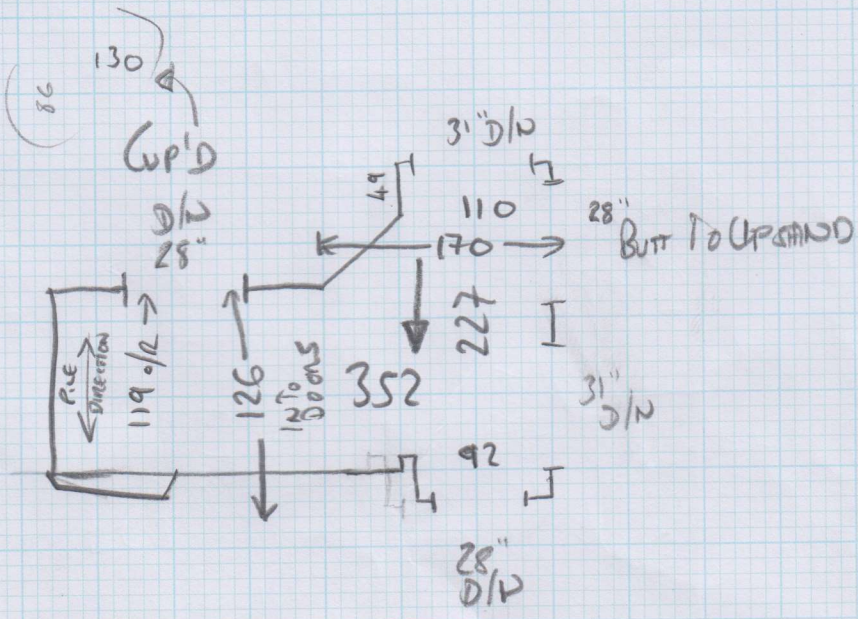 130
86
CUP'D
D/N
28"
31" D/N
49
110
170
28"
BUTT TO UPSTAND
227
PILE
DIRECTION
119 O/R
126
IN TO
DOORS
352
31"
D/N
92
28"
D/N